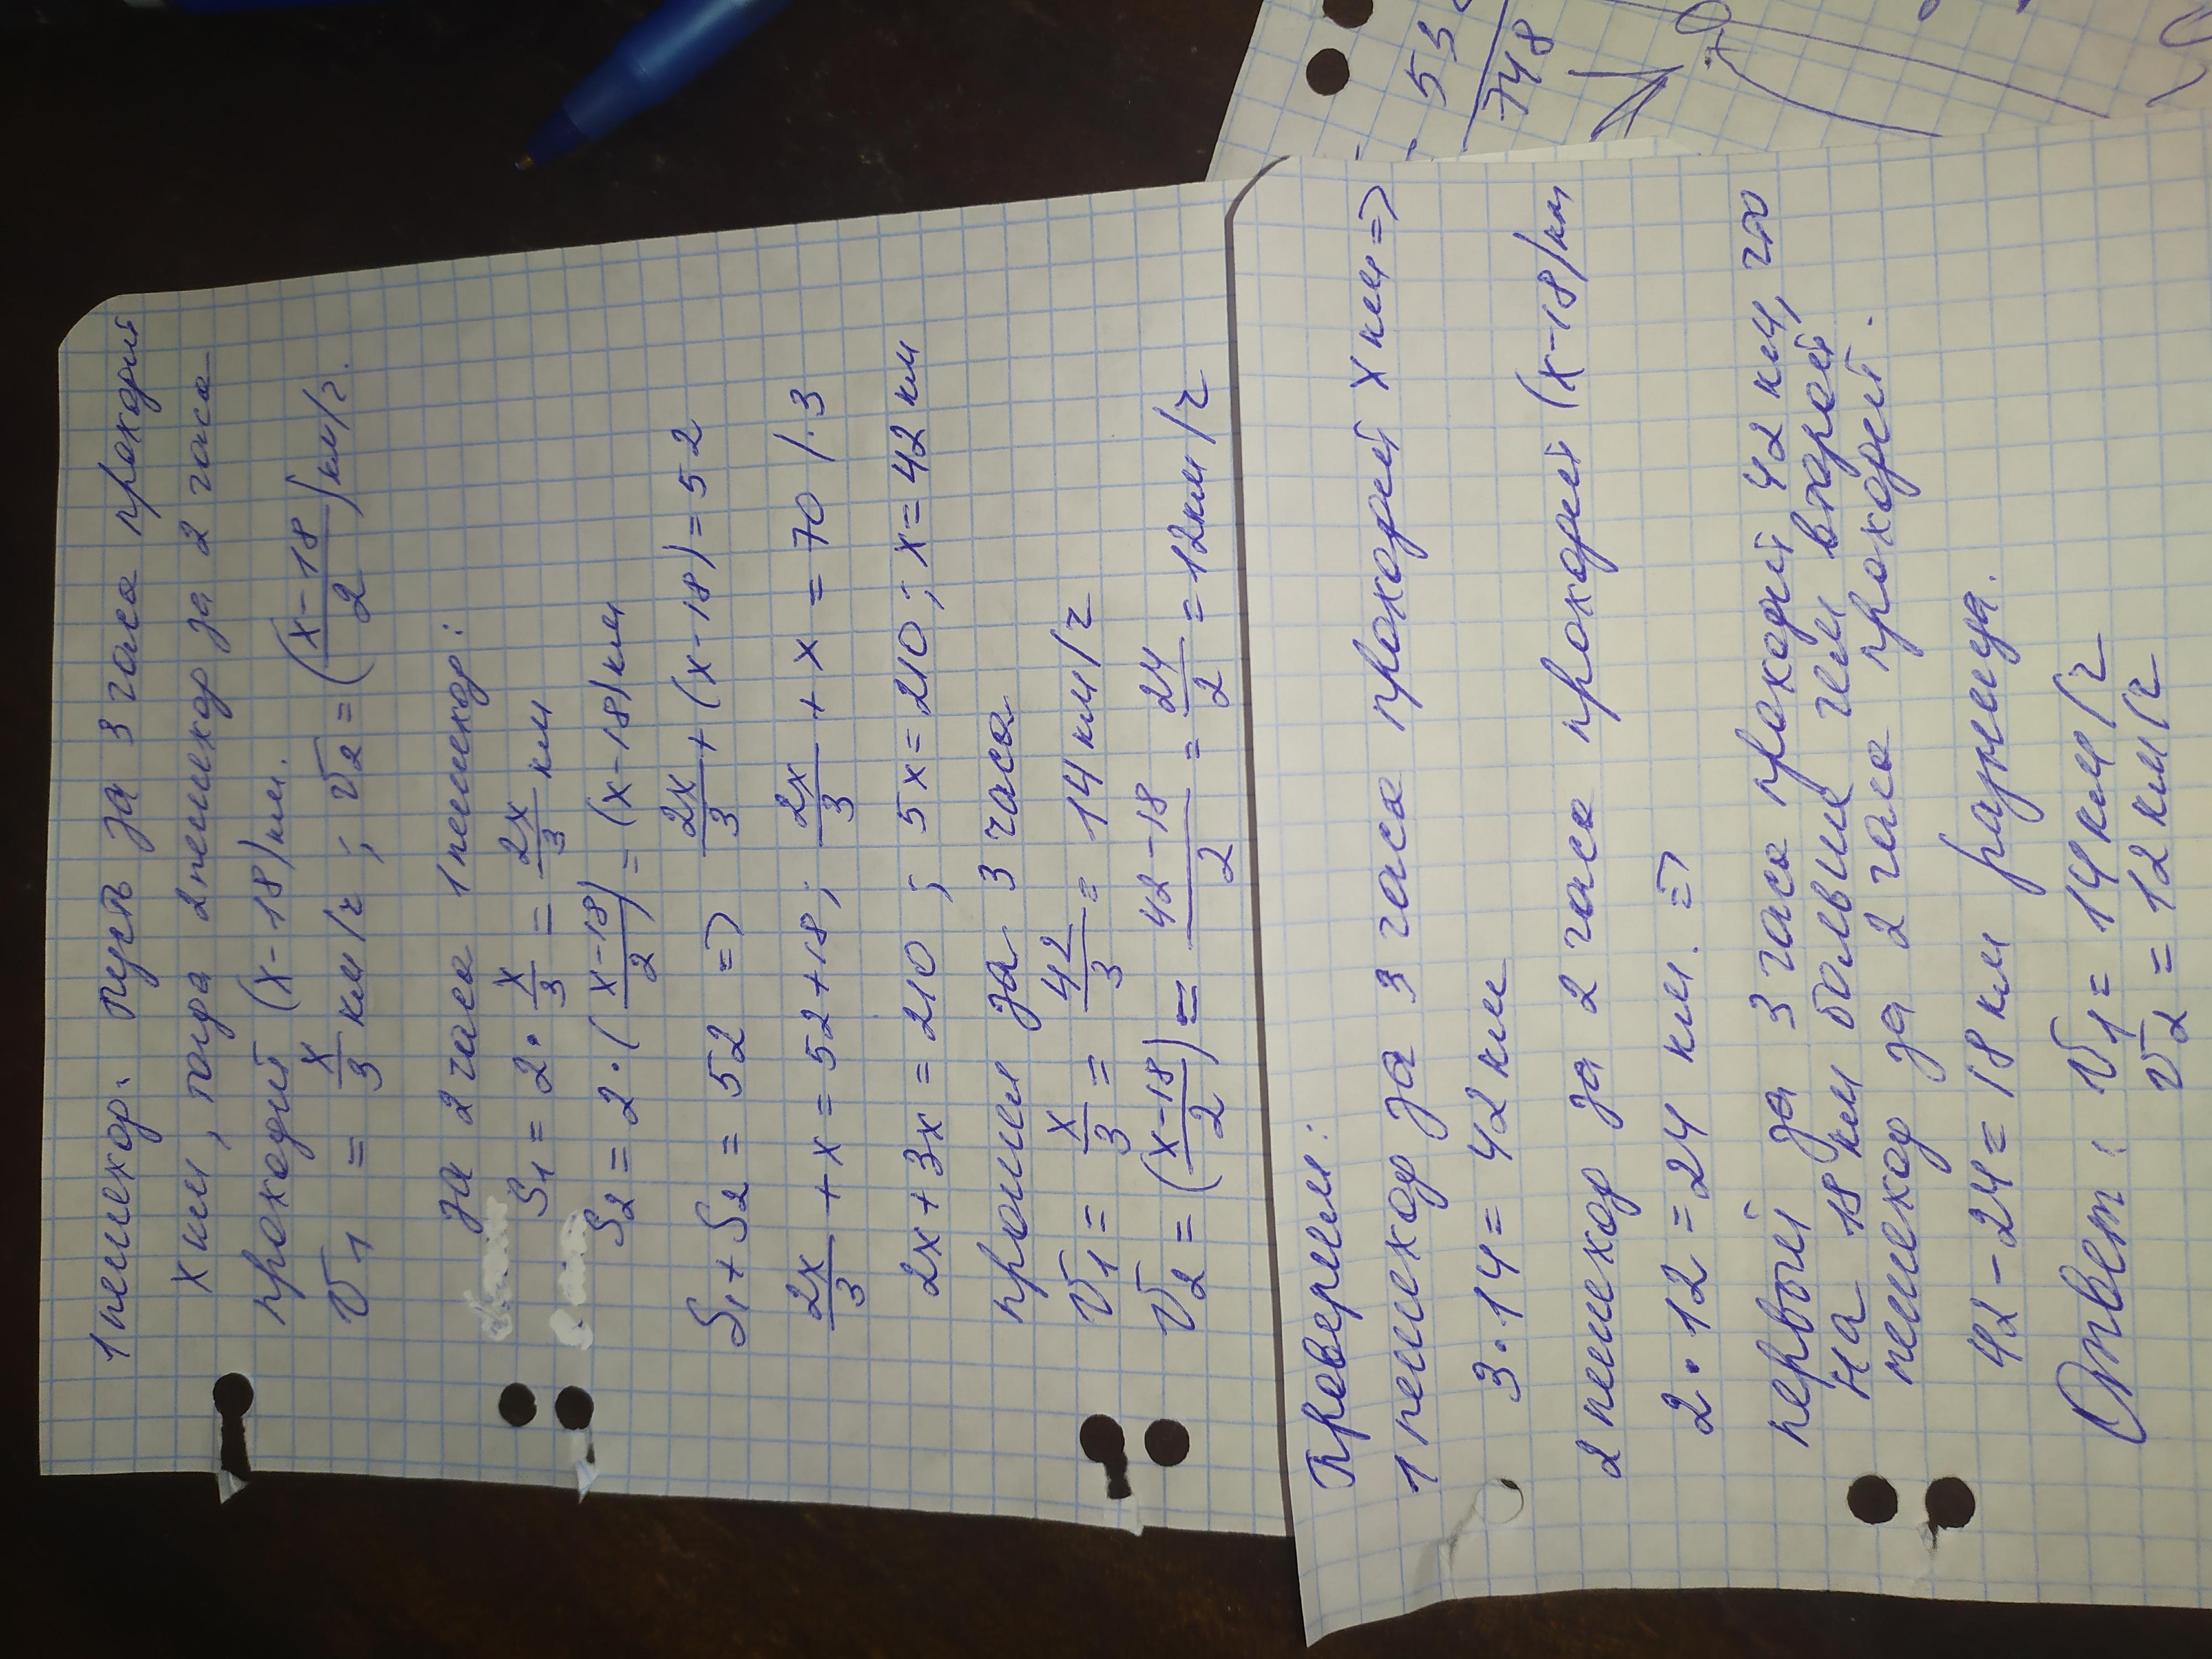 1 пешеход: пусть за 3 часа проходит
x км, тогда 2 пешеход за 2 часа
проходит (x-18) км.
V1 = x/3 км/ч ; V2 = (x-18/2) км/ч.
за 2 часа 1 пешеход:
S1 = 2 · x/3 = 2x/3 км
S2 = 2 · (x-18/2) = (x-18) км
S1 + S2 = 52 => 2x/3 + (x-18) = 52
2x/3 + x = 52 + 18 ; 2x/3 + x = 70 /·3
2x + 3x = 210 ; 5x = 210 ; x = 42 км
прошел за 3 часа
V1 = x/3 = 42/3 = 14 км/ч
V2 = (x-18/2) = 42-18/2 = 24/2 = 12 км/ч
Проверим:
1 пешеход за 3 часа проходит x км =>
3 · 14 = 42 км
2 пешеход за 2 часа проходит (x-18) км
2 · 12 = 24 км. =>
первый за 3 часа проходит 42 км, что
на 18 км больше чем второй
пешеход за 2 часа проходит.
42 - 24 = 18 км разница.
Ответ: V1 = 14 км/ч
V2 = 12 км/ч
53
748